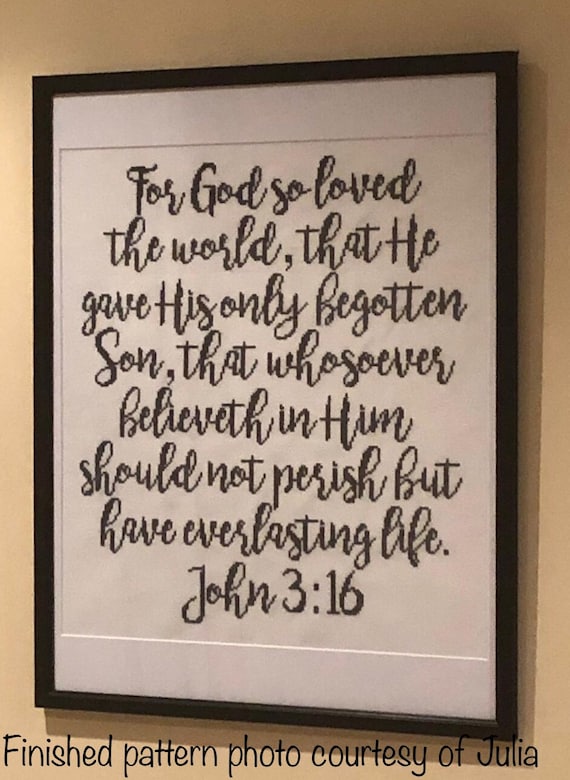 For God so loved
the world, that He
gave His only begotten
Son, that whosoever
believeth in Him
should not perish but
have everlasting life.
John 3:16
Finished pattern photo courtesy of Julia